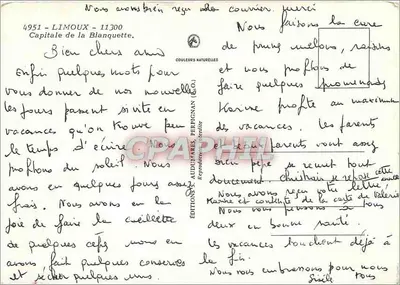 Nous avons bien reçu votre courrier. merci
4951 - LIMOUX - 11300
Capitale de la Blanquette.
Bien chers amis
Enfin quelques mots pour
vous donner de nos nouvelles
les jours passent si vite en
vacances qu'on trouve peu
le temps d'écrire. Nous
profitons du soleil. Nous
avons eu quelques jours assez
frais. Nous avons eu la
joie de faire la cueillette
de quelques cèpes nous en
avons fait quelques conserves
et sécher quelques uns.
COULEURS NATURELLES
EDITIONS AUDUMARES, PERPIGNAN (P.-O.)
CPAPHIL
Nous faisons la cure
de prunes melons, raisins
et nous profitons de
faire quelques promenades
Karine profite au maximum
des vacances. les parents
vont assez
bien pépé se remet tout
doucement
Nous avons reçu votre lettre
Karine est contente de la carte de Valérie
Nous vous pensons à tous
deux en bonne santé.
les vacances touchent déjà à
la fin.
Nous vous embrassons pour nous
tous
Gisèle